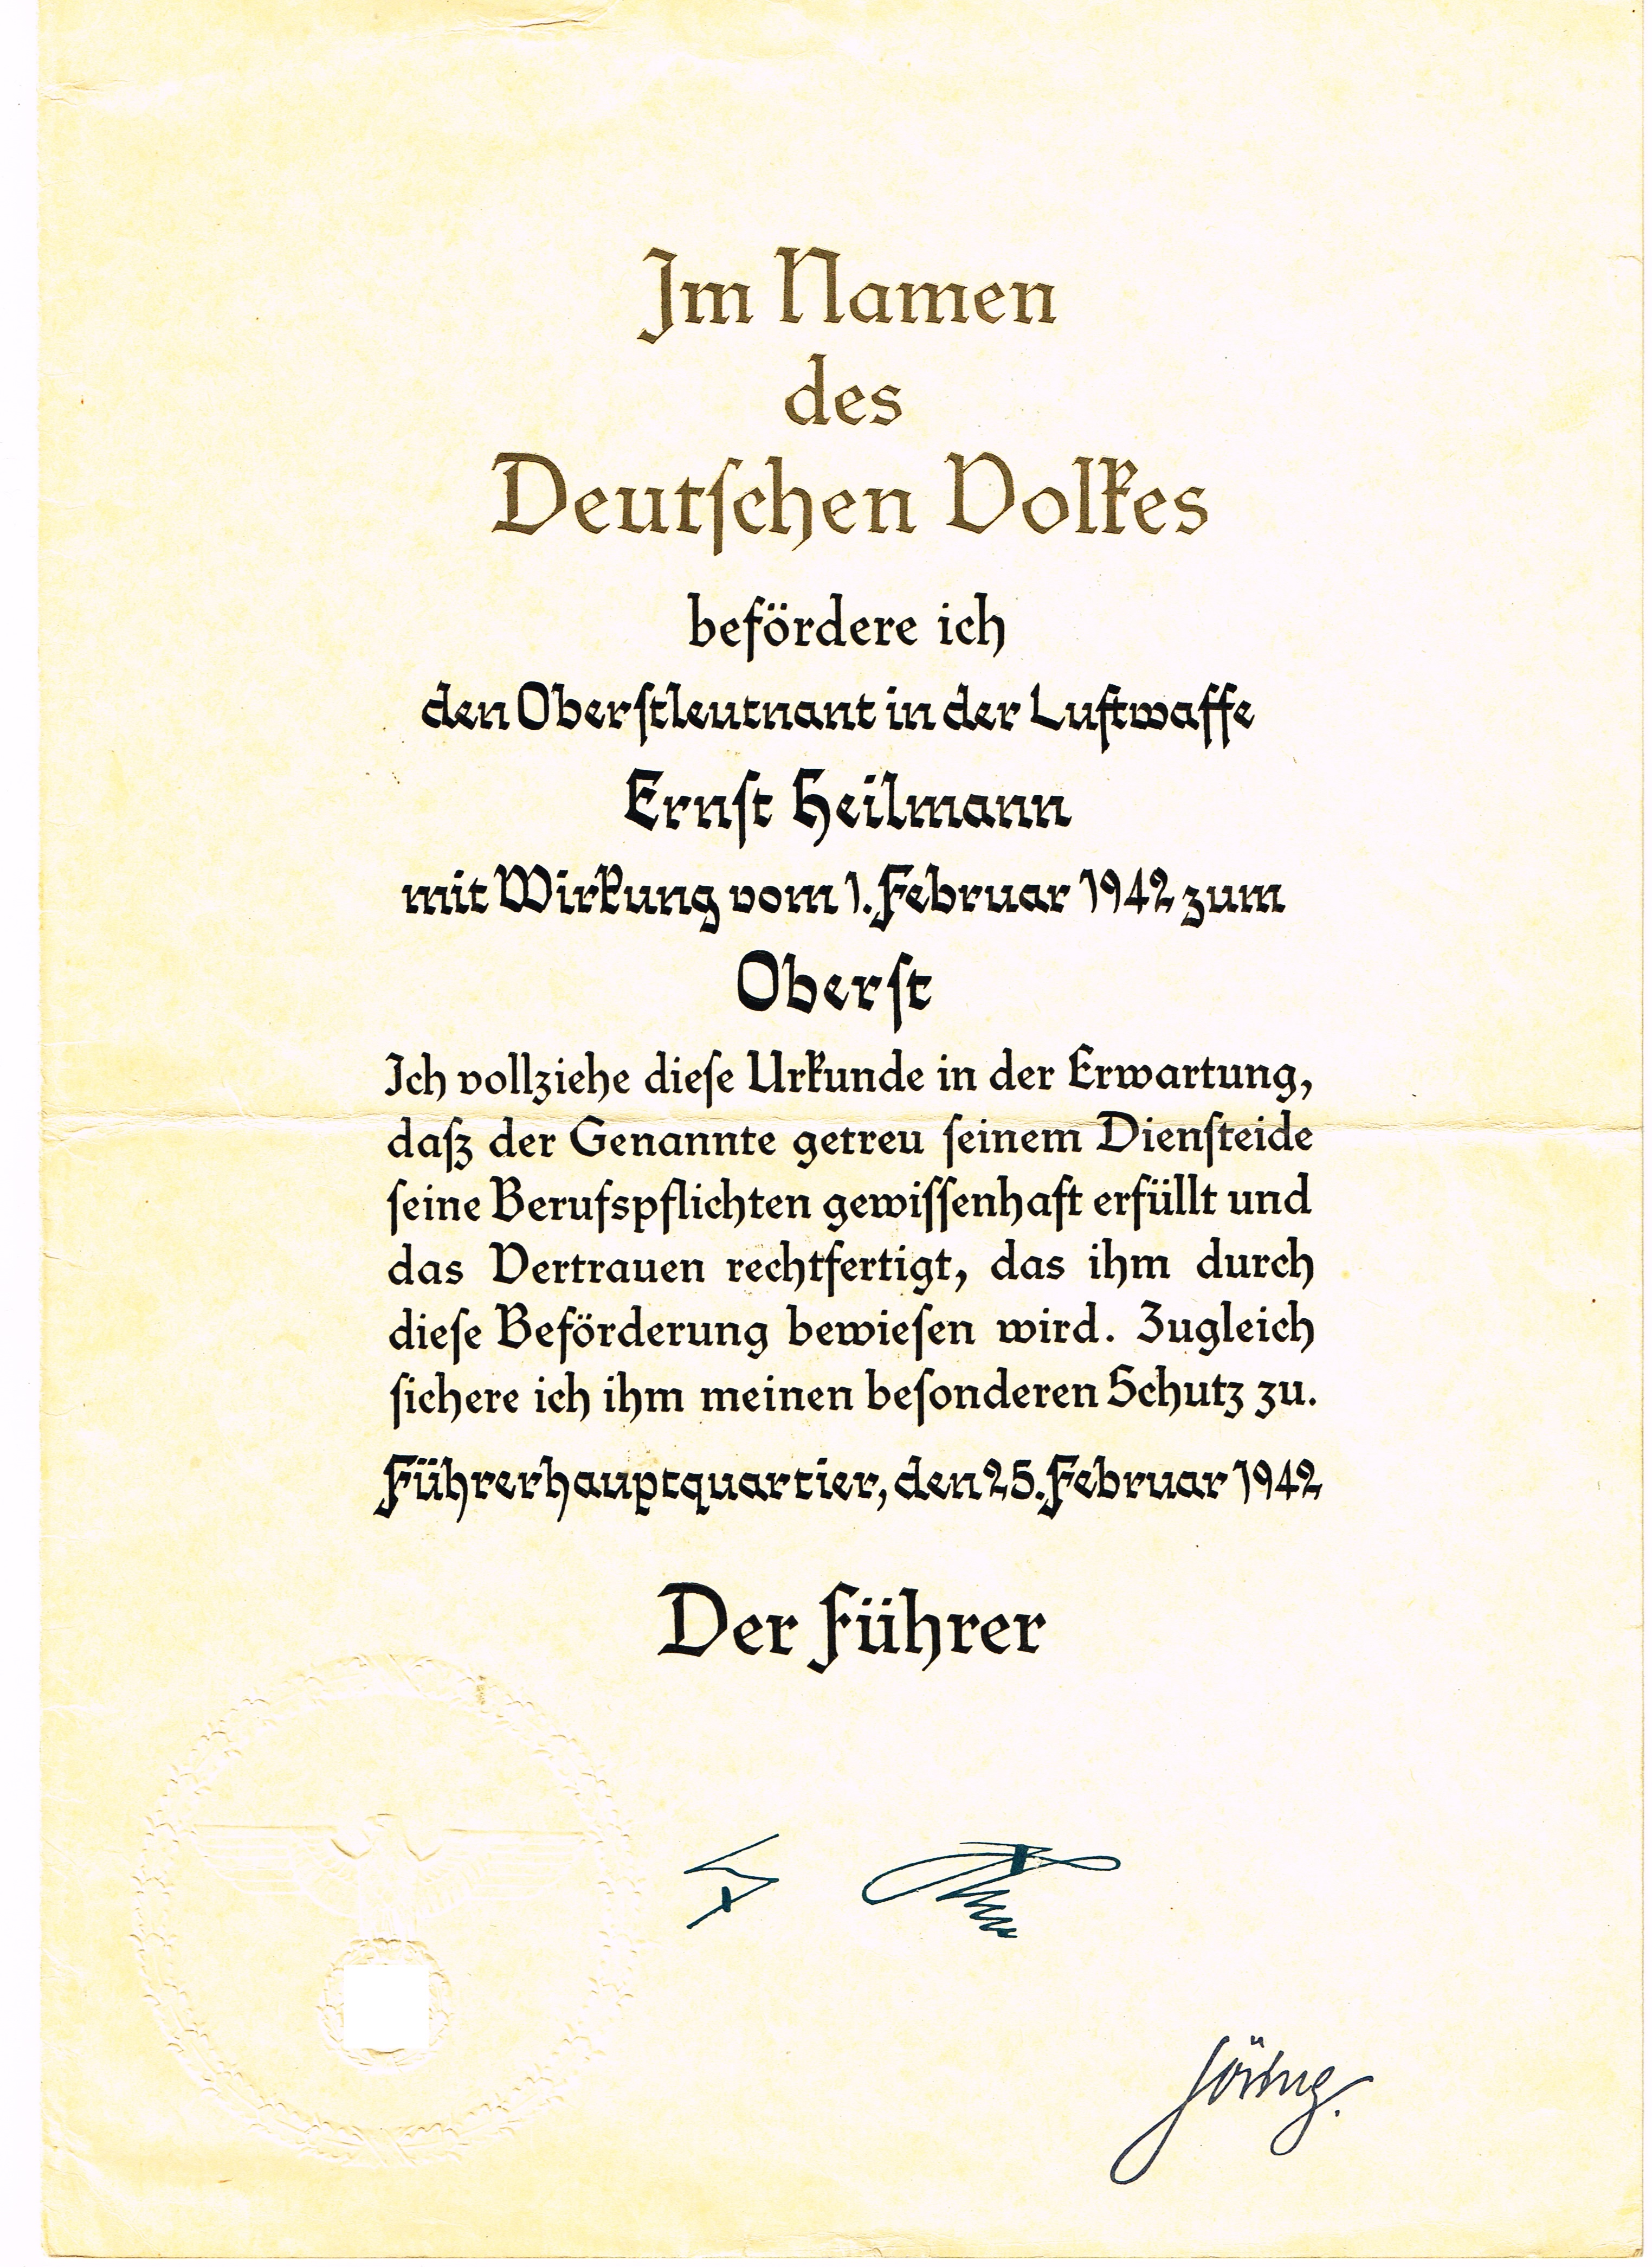 Im Namen
des
Deutſchen Volkes
befördere ich
den Oberſtleutnant in der Luftwaffe
Ernſt Heilmann
mit Wirkung vom 1. Februar 1942 zum
Oberſt
Ich vollziehe dieſe Urkunde in der Erwartung,
daß der Genannte getreu ſeinem Dienſteide
ſeine Berufspflichten gewiſſenhaft erfüllt und
das Vertrauen rechtfertigt, das ihm durch
dieſe Beförderung bewieſen wird. Zugleich
ſichere ich ihm meinen beſonderen Schutz zu.
Führerhauptquartier, den 25. Februar 1942
Der Führer
Göring.